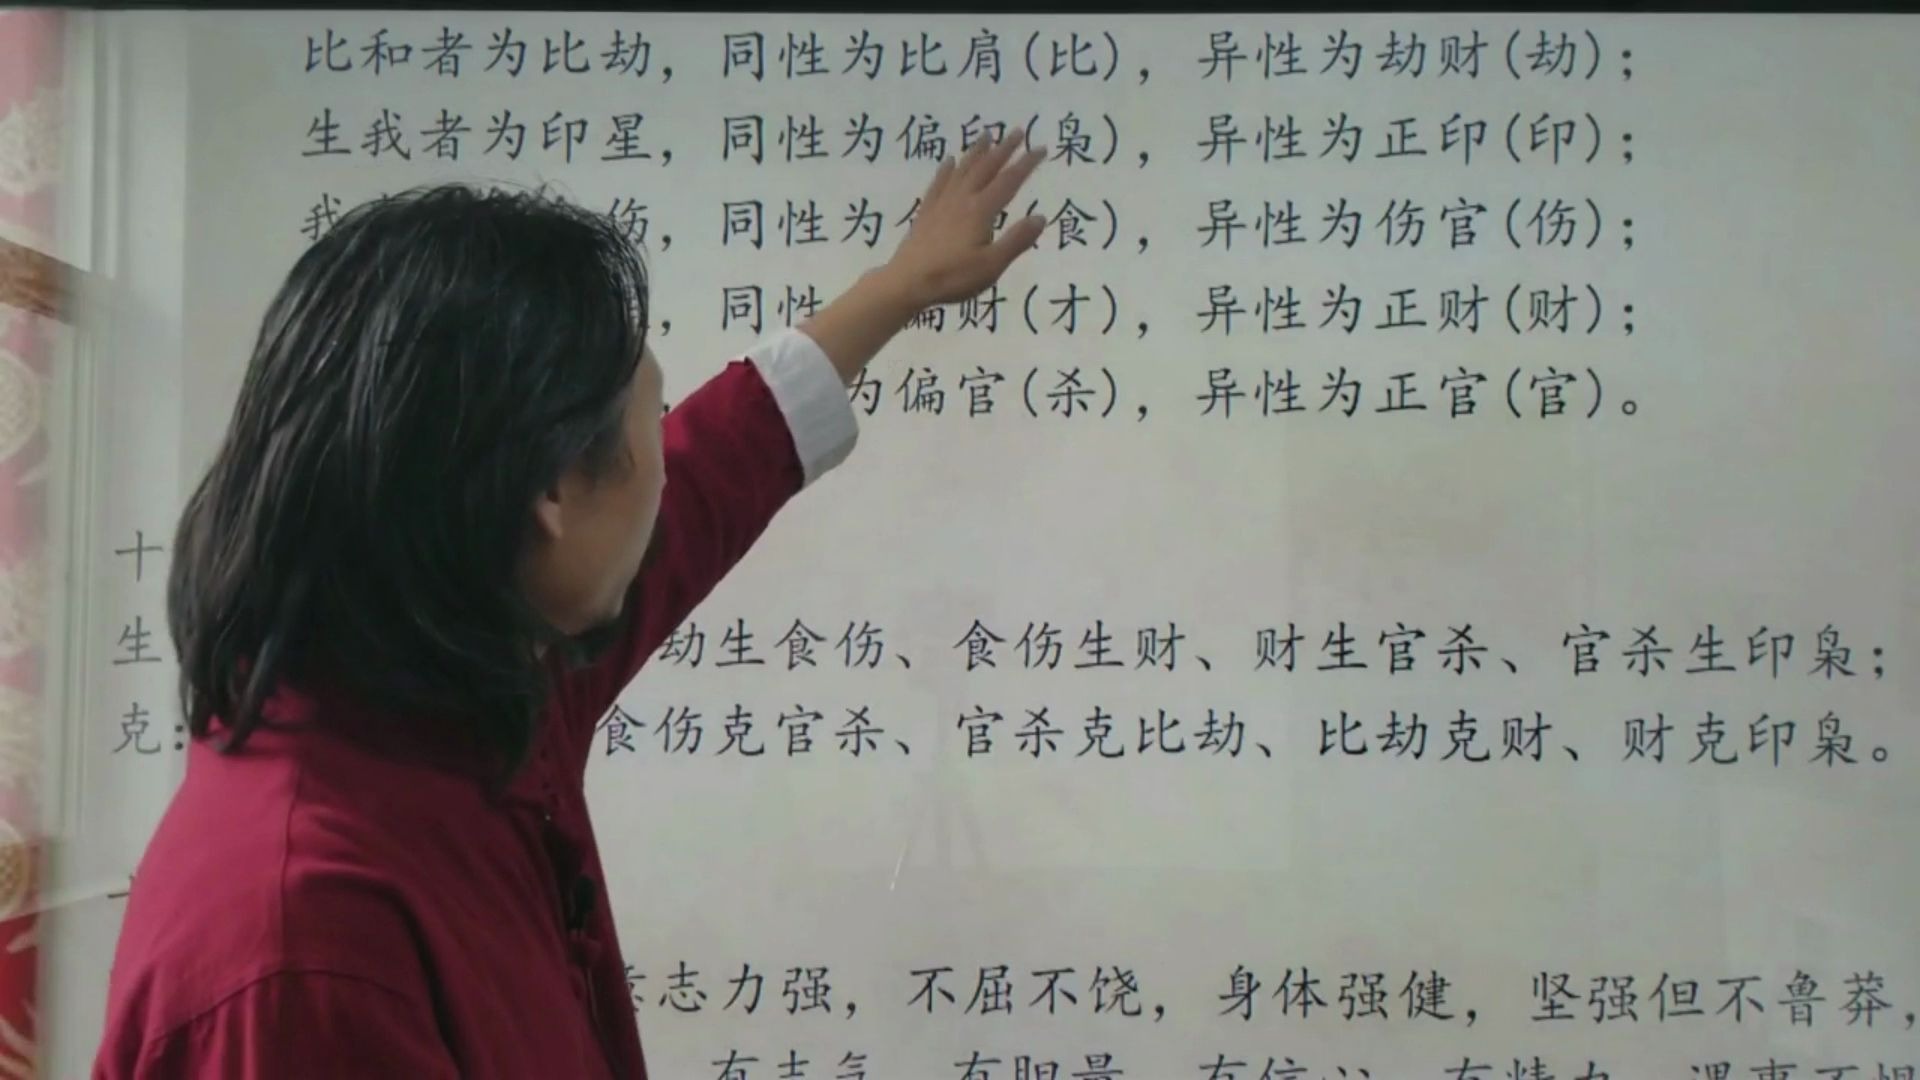 比和者为比劫，同性为比肩(比)，异性为劫财(劫)；
生我者为印星，同性为偏印(枭)，异性为正印(印)；
我 伤，同性为 (食)，异性为伤官(伤)；
，同性 偏财(才)，异性为正财(财)；
为偏官(杀)，异性为正官(官)。
十
生 劫生食伤、食伤生财、财生官杀、官杀生印枭；
克: 食伤克官杀、官杀克比劫、比劫克财、财克印枭。
意志力强，不屈不饶，身体强健，坚强但不鲁莽，
有志气 有胆量 有信心 有精力 遇事不惧